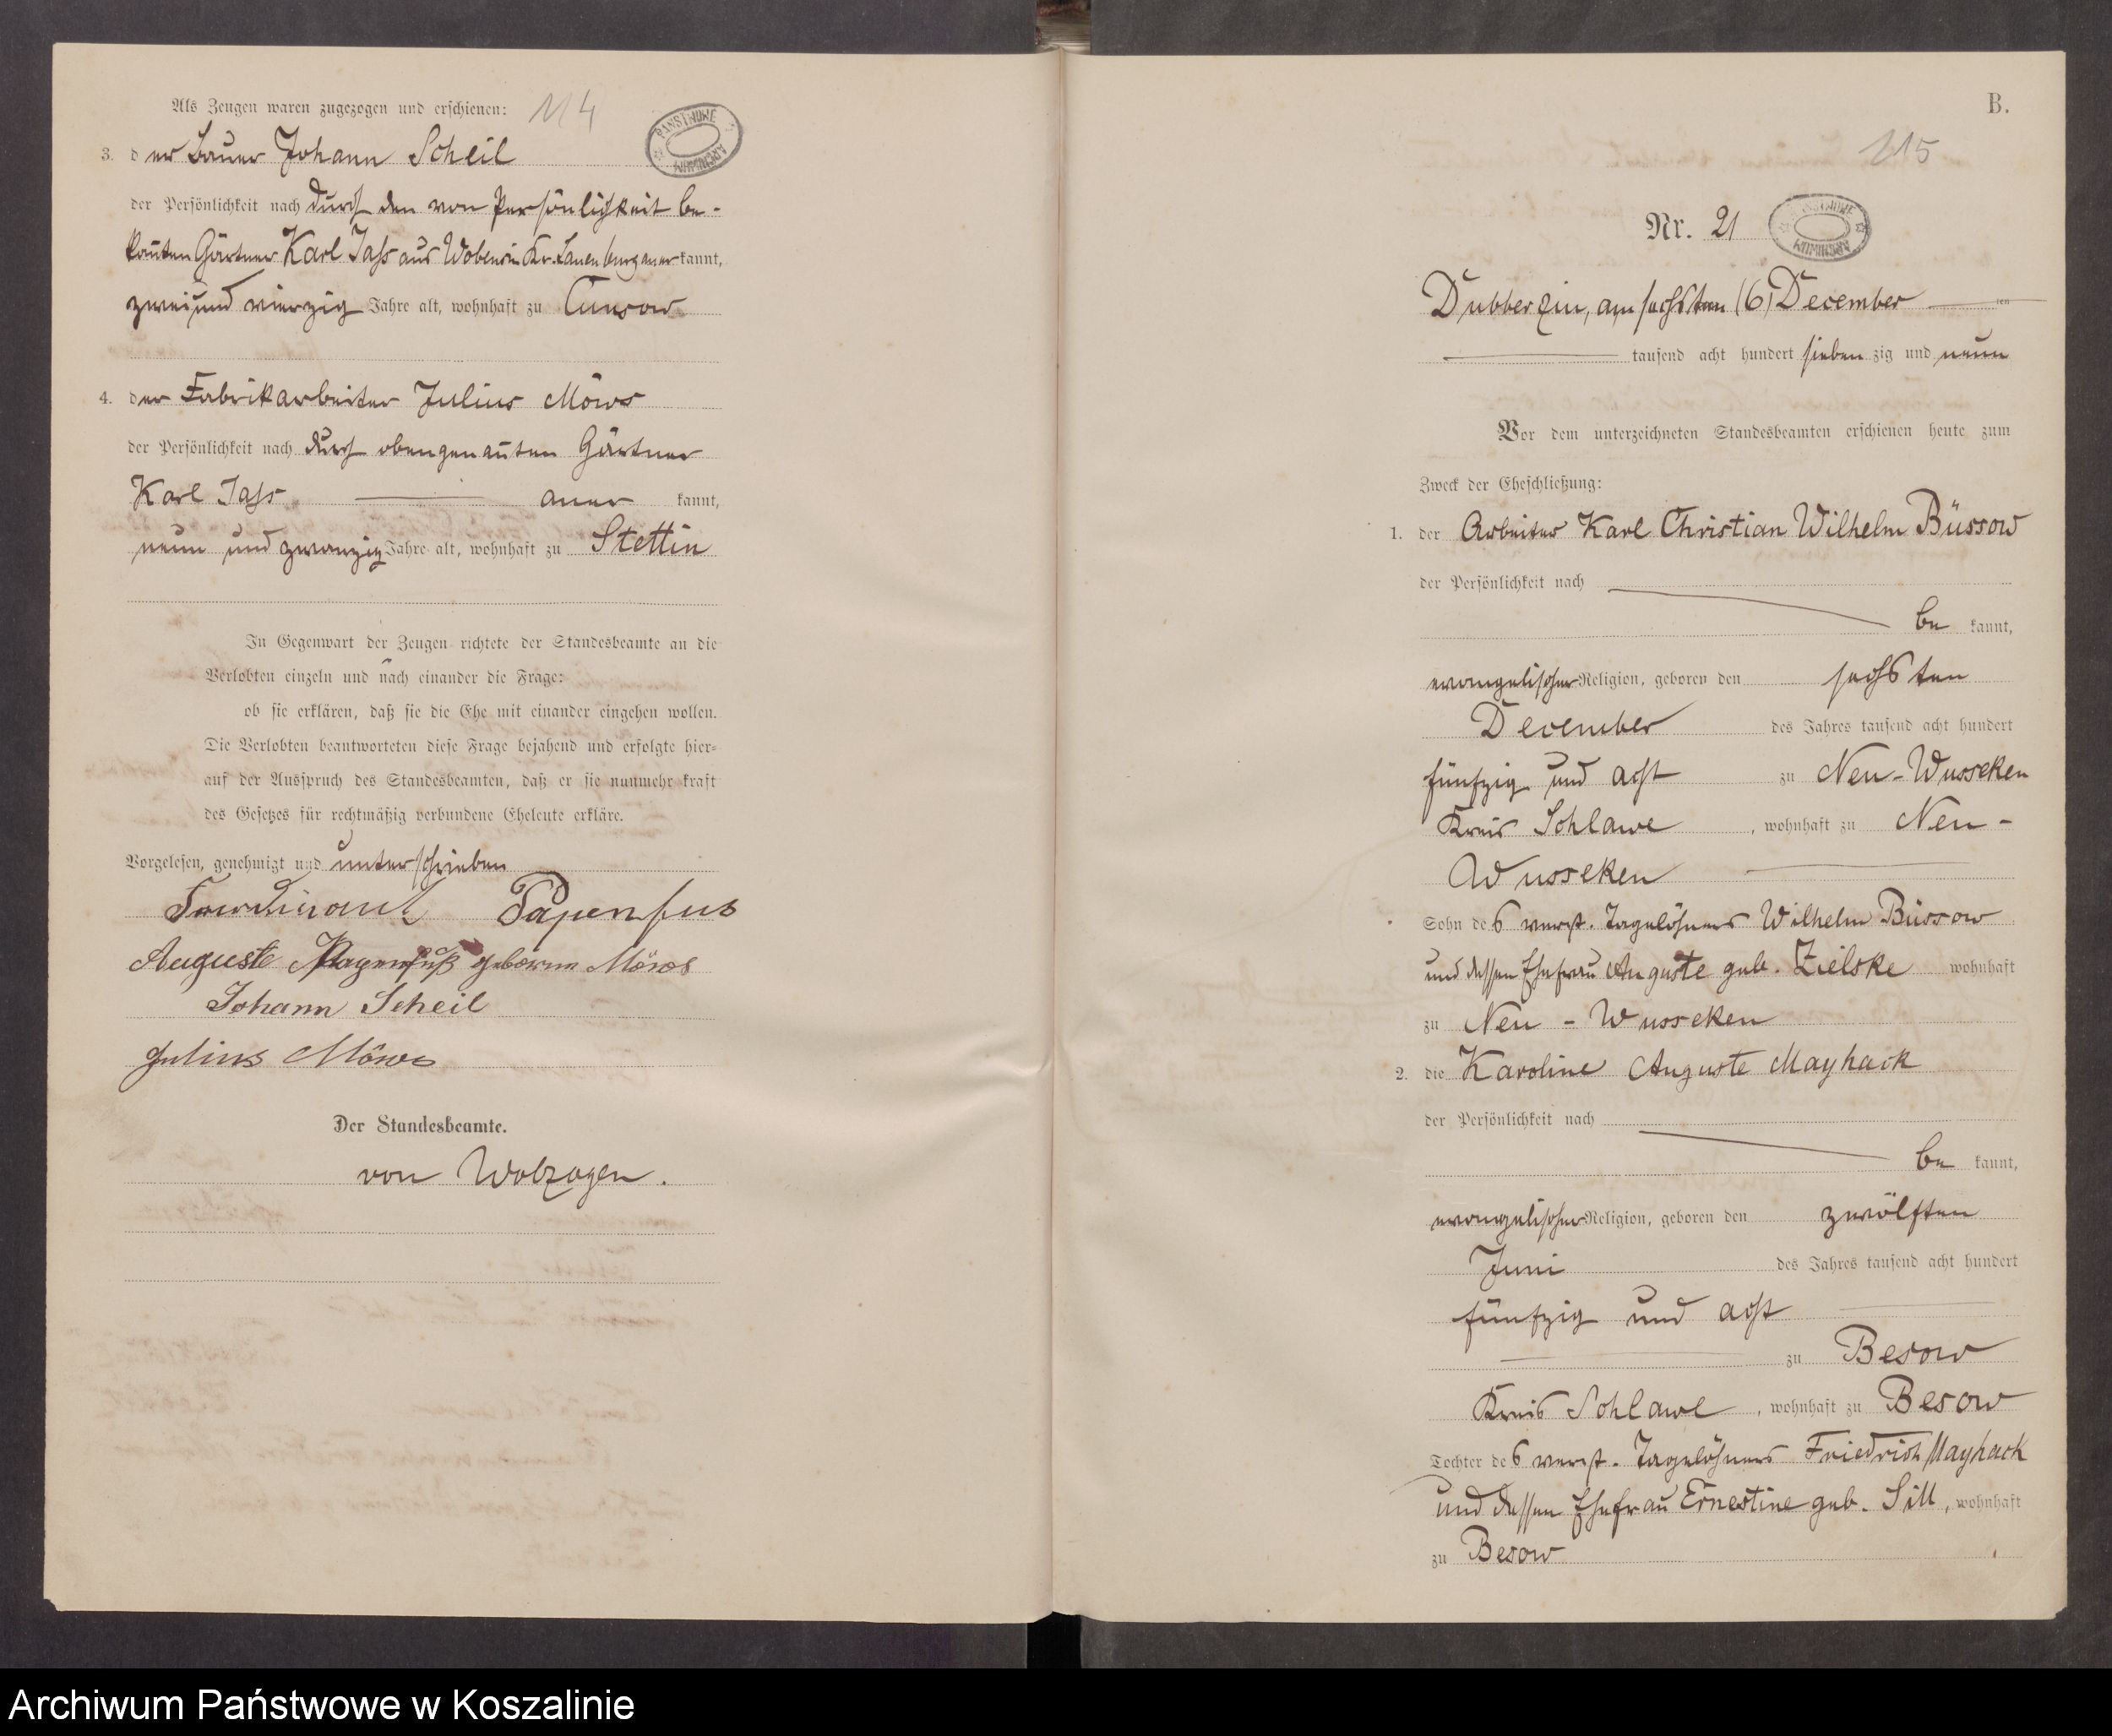 Als Zeugen waren zugezogen und erschienen: 114
PAŃSTWOWE ARCHIWUM
3. der Bauer Johann Scheil
der Persönlichkeit nach durch den von Persönlichkeit be-
kannten Gärtner Karl Jass aus Kr. Lauenburg anerkannt,
zwei und vierzig Jahre alt, wohnhaft zu Cunsow
4. der Fabrikarbeiter Julius Möws
der Persönlichkeit nach durch obengenannten Gärtner
Karl Jass aner kannt,
neun und zwanzig Jahre alt, wohnhaft zu Stettin
In Gegenwart der Zeugen richtete der Standesbeamte an die
Verlobten einzeln und nach einander die Frage:
ob sie erklären, daß sie die Ehe mit einander eingehen wollen.
Die Verlobten beantworteten diese Frage bejahend und erfolgte hier-
auf der Ausspruch des Standesbeamten, daß er sie nunmehr kraft
des Gesetzes für rechtmäßig verbundene Eheleute erkläre.
Vorgelesen, genehmigt und unterschrieben
Papenfus
Auguste Papenfuß geborene Möws
Johann Scheil
Julius Möws
Der Standesbeamte.
von Wolzogen.
B.
115
Nr. 21
PAŃSTWOWE ARCHIWUM
Dubberzin, am sechsten (6) December ten
tausend acht hundert siebenzig und neun
Vor dem unterzeichneten Standesbeamten erschienen heute zum
Zweck der Eheschließung:
1. der Arbeiter Karl Christian Wilhelm Büssow
der Persönlichkeit nach
be kannt,
evangelischer Religion, geboren den sechsten
December des Jahres tausend acht hundert
fünfzig und acht zu Neu-Wusseken
Kreis Schlawe, wohnhaft zu Neu-
Wusseken
Sohn des verst. Tagelöhners Wilhelm Büssow
und dessen Ehefrau Auguste geb. Zielske wohnhaft
zu Neu-Wusseken
2. die Karoline Auguste Mayhack
der Persönlichkeit nach
be kannt,
evangelischer Religion, geboren den zwölften
Juni des Jahres tausend acht hundert
fünfzig und acht
zu Besow
Kreis Schlawe, wohnhaft zu Besow
Tochter des verst. Tagelöhners Friedrich Mayhack
und dessen Ehefrau Ernestine geb. Sill, wohnhaft
zu Besow
Archiwum Państwowe w Koszalinie